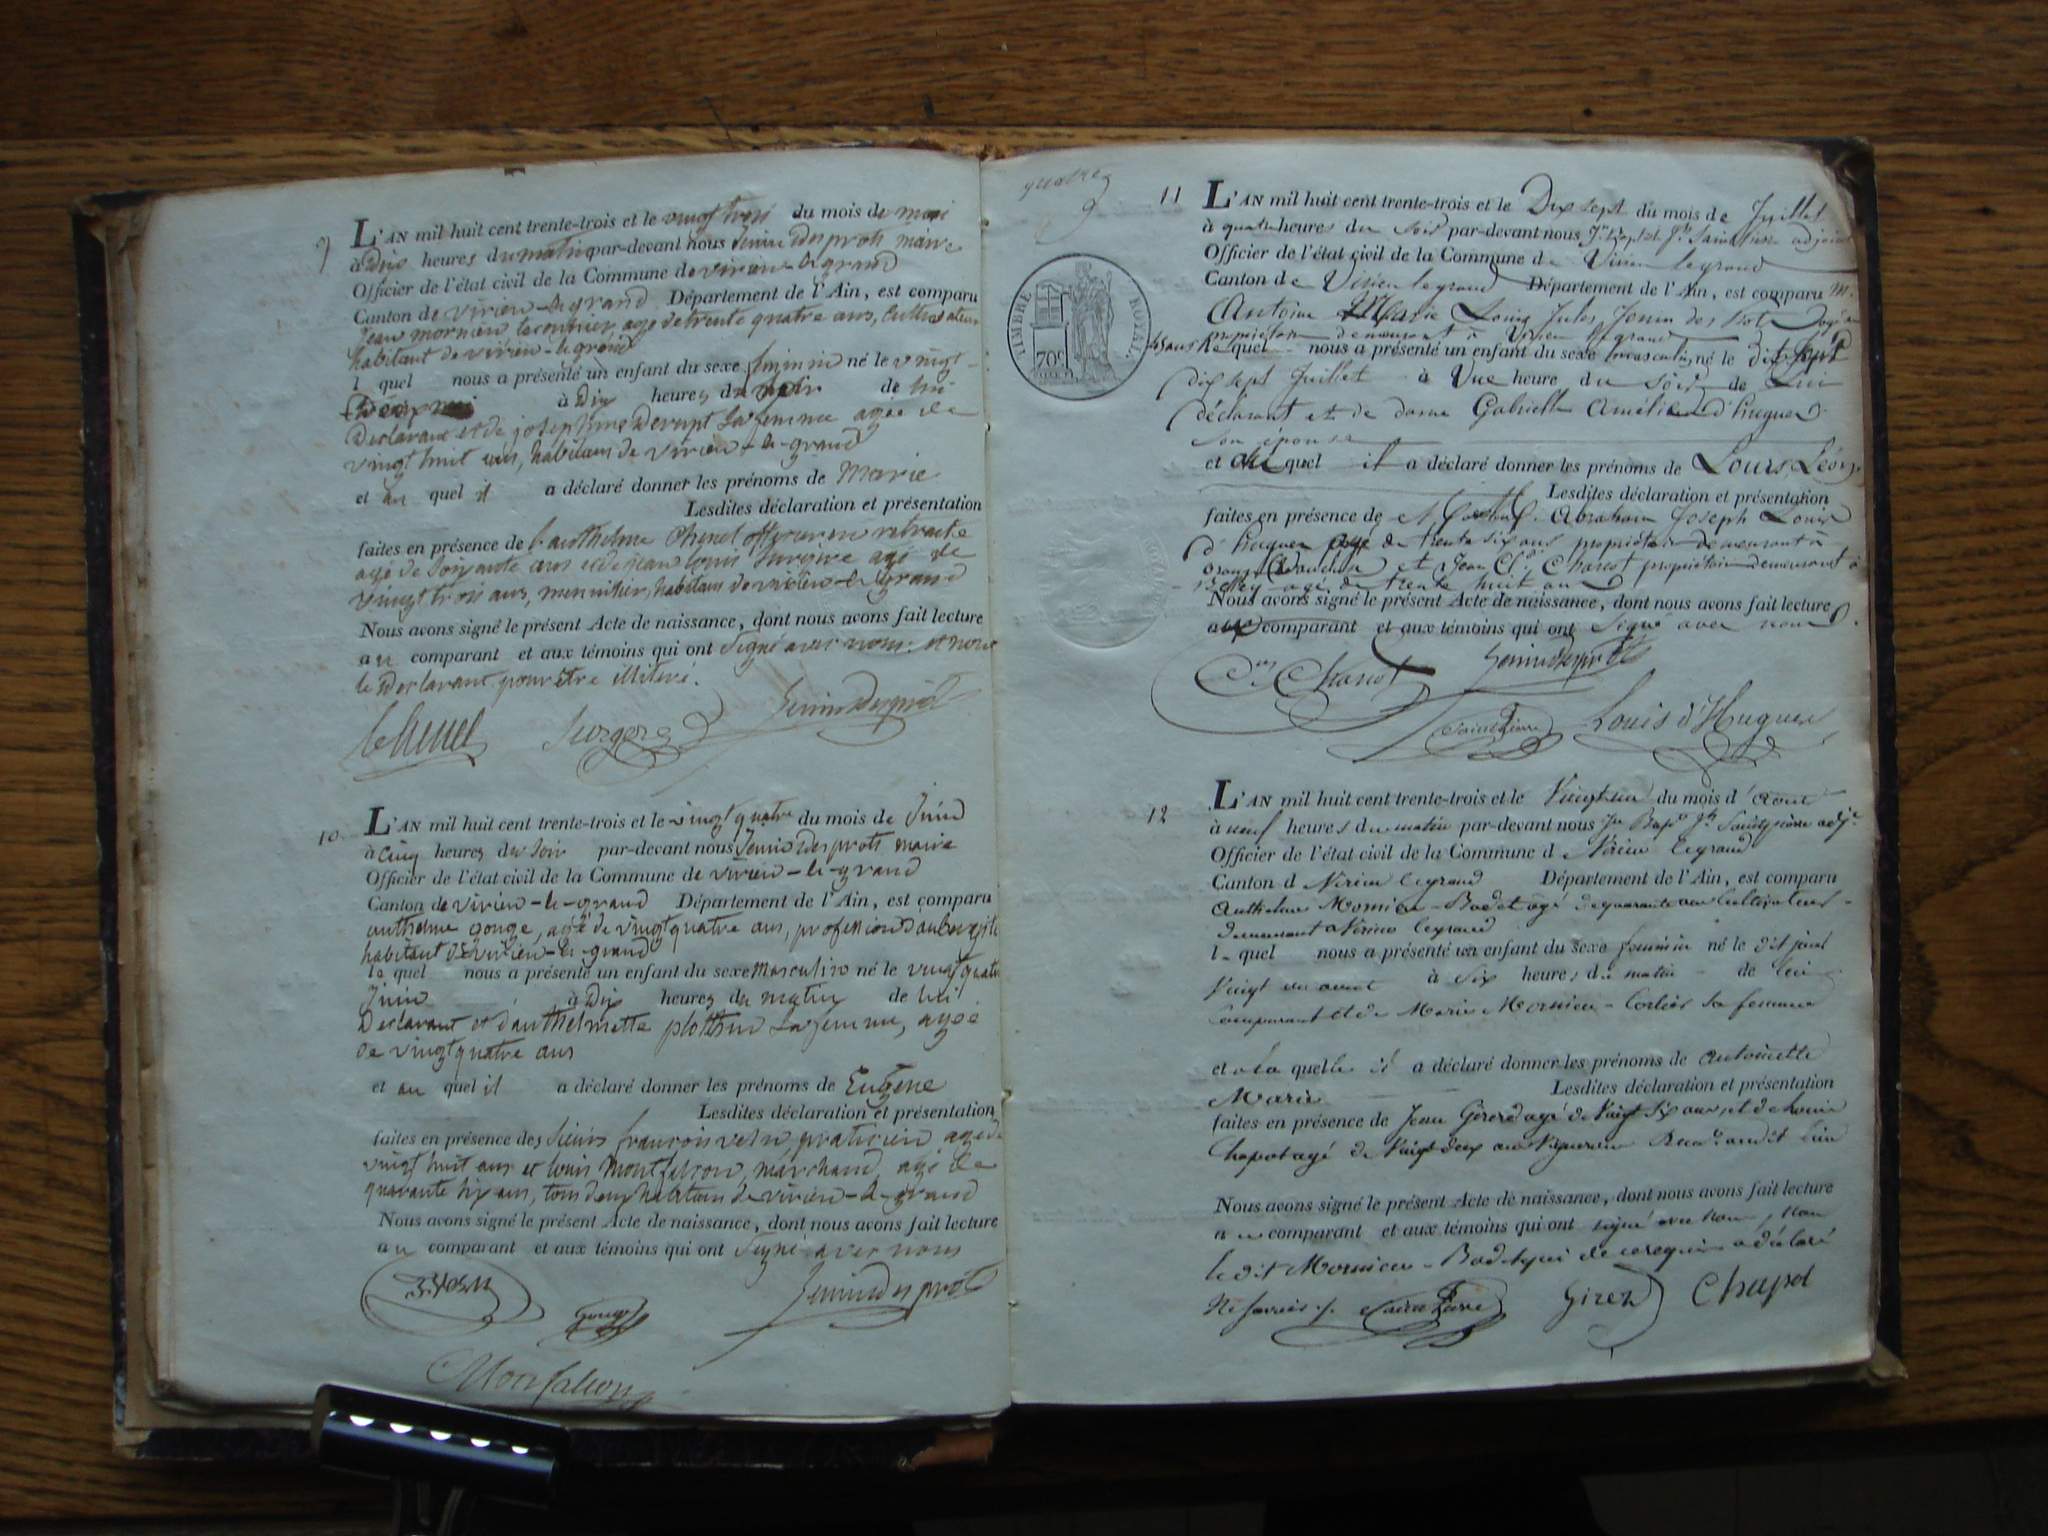 9
L'AN mil huit cent trente-trois et le vingt trois du mois de mai
à Dix heures du matin par-devant nous Jenin Desprots maire
Officier de l'état civil de la Commune de virieu-le-grand
Canton de virieu-le-grand Département de l'Ain, est comparu
Jean mornieu, agé de trente quatre ans, Cultivateur
habitant de virieu-le-grand
lequel nous a présenté un enfant du sexe feminin né le vingt
à Dix heures du soir de lui
Declarant et de josephine sa femme agée de
vingt huit ans, habitans de virieu-le-grand
et au quel il a déclaré donner les prénoms de Marie
Lesdites déclaration et présentation
faites en présence de l'anthelme Chenel officier en retraite
agé de soixante ans et de jean louis surgere agé de
vingt trois ans, menuisier, habitans de virieu-le-grand
Nous avons signé le présent Acte de naissance, dont nous avons fait lecture
au comparant et aux témoins qui ont signé avec nous. et non
le Declarant pour être illitéré.
Surgere Jenin Desprots
10
L'AN mil huit cent trente-trois et le vingt quatre du mois de Juin
à cinq heures du soir par-devant nous Jenin Desprots maire
Officier de l'état civil de la Commune de virieu-le-grand
Canton de virieu-le-grand Département de l'Ain, est comparu
anthelme gouge, agé de vingt quatre ans, profession d'aubergiste
habitant de virieu-le-grand
lequel nous a présenté un enfant du sexe masculin né le vingt quatre
Juin à Dix heures du matin de lui
Declarant et d'anthelmette sa femme, agée
de vingt quatre ans
et au quel il a déclaré donner les prénoms de Eugène
Lesdites déclaration et présentation
faites en présence des sieurs françois praticien agé de
vingt huit ans et louis montfalcon, marchand, agé de
quarante six ans, tous deux habitans de virieu-le-grand
Nous avons signé le présent Acte de naissance, dont nous avons fait lecture
au comparant et aux témoins qui ont signé avec nous
Gouge Jenin Desprots
Monfalcon
quatre
9
TIMBRE ROYAL
70c
11
L'AN mil huit cent trente-trois et le Dix sept du mois de Juillet
à quatre heures du soir par-devant nous Jn Bapt Jh Saintpierre adjoint
Officier de l'état civil de la Commune de Virieu legrand
Canton de Virieu legrand Département de l'Ain, est comparu M.
Antoine Marie Louis Jules Jenin des Prots agé de
ans propriétaire demeurant à Virieu legrand
lequel nous a présenté un enfant du sexe masculin, né le dit jour
dix sept Juillet à Une heure du soir de Lui
déclarant et de dame Gabrielle Amélie d'Hugues
son épouse
et au quel il a déclaré donner les prénoms de Louis Léon
Lesdites déclaration et présentation
faites en présence de Abraham Joseph Louis
d'Hugues agé de trente six ans propriétaire demeurant à
et Jean Charcot propriétaire demeurant à
Belley agé de trente huit ans
Nous avons signé le présent Acte de naissance, dont nous avons fait lecture
aux comparant et aux témoins qui ont signé avec nous.
Jenin desprots
SaintPierre Louis d'Hugues
12
L'AN mil huit cent trente-trois et le Vingt un du mois d'aout
à neuf heures du matin par-devant nous Jn Bapt Jh Saintpierre adjt
Officier de l'état civil de la Commune d Virieu legrand
Canton d Virieu legrand Département de l'Ain, est comparu
Anthelme Mornieu-Badet agé de quarante ans Cultivateur
demeurant à Virieu legrand
lequel nous a présenté un enfant du sexe feminin né le dit jour
Vingt un aout à Six heures du matin de lui
Comparant et de Marie Mornieu-Corlier sa femme
et à la quelle il a déclaré donner les prénoms de Antoinette
Marie Lesdites déclaration et présentation
faites en présence de Jean Girerd agé de Vingt Six ans, et de
Chapot agé de Vingt deux ans
Nous avons signé le présent Acte de naissance, dont nous avons fait lecture
au comparant et aux témoins qui ont signé avec nous, non
le dit Mornieu-Badet qui de ce requis a déclaré
Ne Savoir. SaintPierre Girerd Chapot